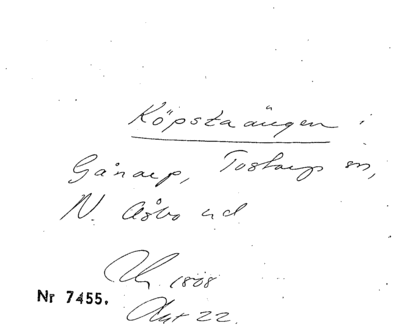 Köpstaängen i
Gånarp, Tostarp sn,
N. Åsbo hd
1808
Nr 7455.
Akt 22.